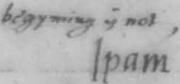 begynning is not,
Ipam